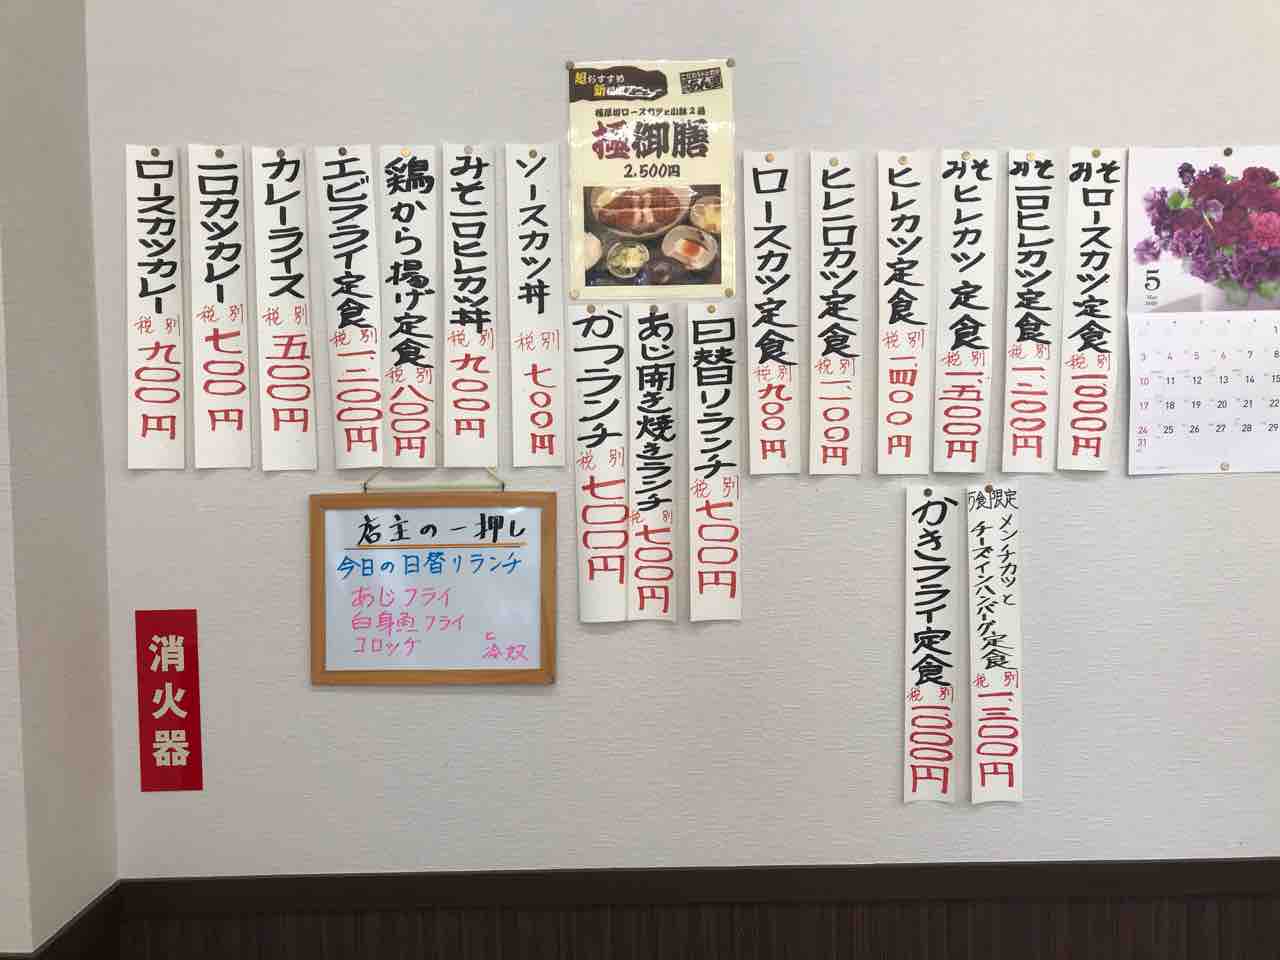 みそロースカツ定食 税別 一、〇〇〇円
みそ一口ヒレカツ定食 税別 一、二〇〇円
みそヒレカツ定食 税別 一、五〇〇円
ヒレカツ定食 税別 一、四〇〇円
ヒレ一口カツ定食 税別 一、一〇〇円
ロースカツ定食 税別 九〇〇円
超おすすめ
極御膳
2,500円
ソースカツ丼 税別 七〇〇円
みそ一口ヒレカツ丼 税別 九〇〇円
鶏から揚げ定食 税別 八〇〇円
エビフライ定食 税別 一、二〇〇円
カレーライス 税別 五〇〇円
一口カツカレー 税別 七〇〇円
ロースカツカレー 税別 九〇〇円
日替りランチ 税別 七〇〇円
あじ開き焼きランチ 税別 七〇〇円
かつランチ 税別 七〇〇円
限定 メンチカツと
チーズインハンバーグ定食 税別 一、三〇〇円
かきフライ定食 税別 一、〇〇〇円
店主の一押し
今日の日替りランチ
あじフライ
白身魚フライ
コロッケ
と
冷奴
消火器
5
3 4 5 6 7 8
10 11 12 13 14 15
17 18 19 20 21 22
24 25 26 27 28 29
31